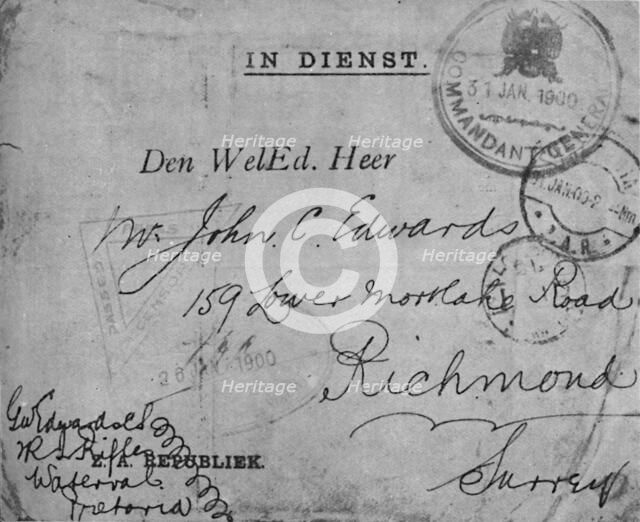 IN DIENST.
COMMANDANT-GENERAL
31 JAN. 1900
Den WelEd. Heer
Mr. John. C. Edwards
159 Lower Mortlake Road
Richmond
Surrey
PASSED
CENSOR
26 JAN 1900
Z. A. REPUBLIEK.
G W Edwards
Rifles
Waterval
Pretoria
Z.A.R.
Heritage
Heritage
Heritage
Heritage
Heritage
Heritage
Heritage
Heritage
C